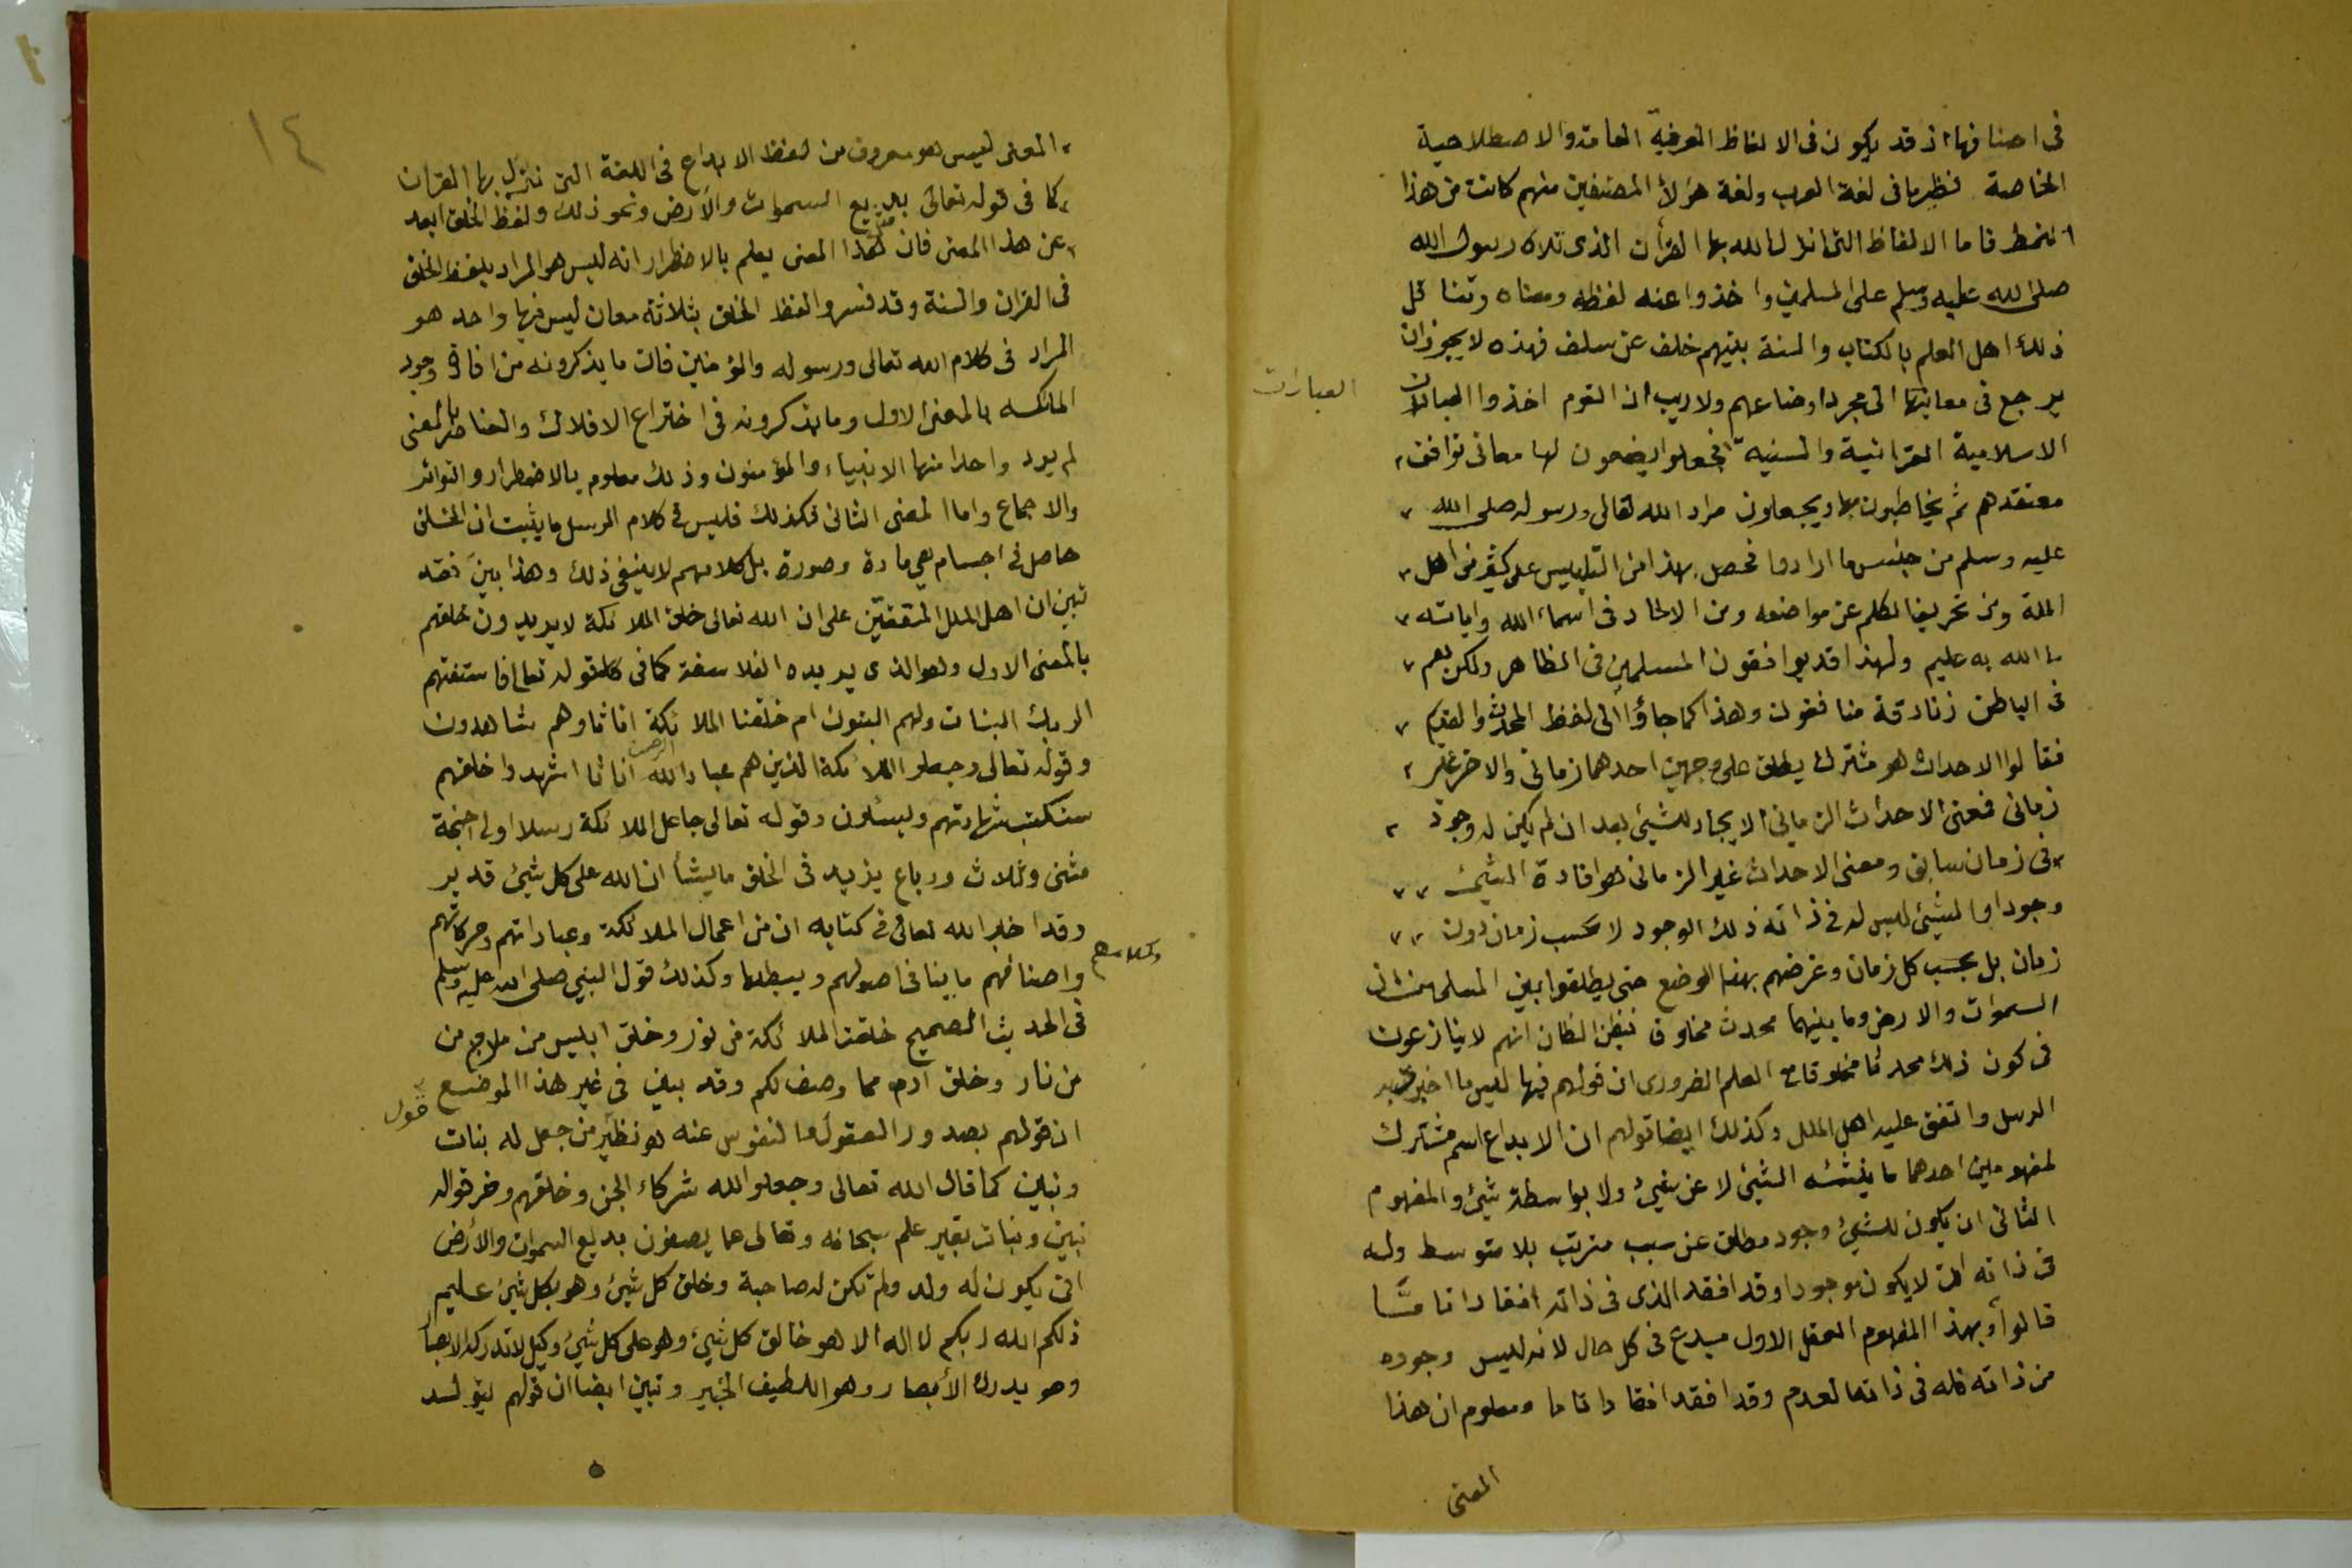 فى اصنافها اذ قد يكون فى الالفاظ العرفية العامة والاصطلاحية
الخاصة نظير ما فى لغة العرب ولغة هؤلاء المصنفين منهم كانت من هذا
النمط فاما الالفاظ التى انزل الله بها القرأن الذى تلاه رسول الله
صلى الله عليه وسلم على المسلمين واخذوا عنه لفظه ومعناه وتناقل
ذلك اهل العلم بالكتاب والسنة بينهم خلف عن سلف فهذه لا يجوز ان
يرجع فى معانيها الى مجرد اوضاعهم ولا ريب ان القوم اخذوا العبارات
العبارات
الاسلامية القرانية والسنية فجعلوا يضعون لها معانى توافق
معتقدهم ثم يخاطبون بها ويجعلون مراد الله تعالى ورسوله صلى الله
عليه وسلم من جنس ما ارادوا فحصل بهذا من التلبيس على كثير من اهل
الملة ومن تحريف الكلم عن مواضعه ومن الالحاد فى اسماء الله واياته
ما الله به عليم ولهذا قد يوافقون المسلمين فى الظاهر ولكن هم
فى الباطن زنادقة منافقون وهذا كما جاؤا الى لفظ المحدث والقديم
فقالوا الاحداث هو مشترك يطلق على وجهين احدهما زمانى والاخر غير
زمانى فمعنى الاحداث الزمانى الايجاد للشيئ بعد ان لم يكن له وجود
فى زمان سابق ومعنى الاحداث غير الزمانى هو افادة الشيئ
وجودا والشيئ ليس له فى ذاته ذلك الوجود لا بحسب زمان دون
زمان بل بحسب كل زمان وغرضهم بهذا الوضع حتى يطلقوا بين المسلمين ان
السموات والارض وما بينهما محدث مخلوق فيظن الظان انهم لا ينازعون
فى كون ذلك محدثا مخلوقا مع العلم الضرورى ان قولهم فيها ليس ما اخبر به
الرسل واتفق عليه اهل الملل وكذلك ايضا قولهم ان الابداع اسم مشترك
لمفهومين احدهما تأييس الشيئ لا عن شيئ ولا بواسطة شيئ والمفهوم
الثانى ان يكون للشيئ وجود مطلق عن سبب مترتب بلا متوسط وله
فى ذاته ان لا يكون موجودا وقد افقد الذى فى ذاته افقادا تاما
قالوا وبهذا المفهوم العقل الاول مبدع فى كل حال لانه ليس وجوده
من ذاته فله فى ذاته العدم وقد افقد افقادا تاما ومعلوم ان هذا
المعنى
١٤
المعنى ليس هو معروف من لفظ الابداع فى اللغة التى نزل بها القران
كما فى قوله تعالى بديع السموات والارض ونحو ذلك ولفظ الخلق ابعد
عن هذا المعنى فان هذا المعنى يعلم بالاضطرار انه ليس هو المراد بلفظ الخلق
فى القران والسنة وقد فسروا لفظ الخلق بثلاثة معان ليس فيها واحد هو
المراد فى كلام الله تعالى ورسوله والمؤمنين فان ما يذكرونه من افادة وجود
الملائكة بالمعنى الاول وما يذكرونه فى اختراع الافلاك والعناصر بالمعنى
لم يرد واحدا منها الانبياء والمؤمنون وذلك معلوم بالاضطرار والتواتر
والاجماع واما المعنى الثانى فكذلك فليس فى كلام الرسل ما يثبت ان الخلق
حاصل فى اجسام هى مادة وصورة بل كلامهم لا ينفى ذلك وهذا بين فقد
تبين ان اهل الملل المتفقين على ان الله تعالى خلق الملائكة لا يريدون خلقهم
بالمعنى الاول وهو الذى يريده الفلاسفة كما فى قوله تعالى فاستفتهم
الربك البنات ولهم البنون ام خلقنا الملائكة اناثا وهم شاهدون
وقوله تعالى وجعلوا الملائكة الذين هم عباد الله الرحمن اناثا اشهدوا خلقهم
ستكتب شهادتهم ويسئلون وقوله تعالى جاعل الملائكة رسلا اولى اجنحة
مثنى وثلاث ورباع يزيد فى الخلق ما يشأ ان الله على كل شيئ قدير
وقد اخبر الله تعالى فى كتابه ان من اعمال الملائكة وعباداتهم وحركاتهم
وكلامهم
واصنافهم ما ينافى اصولهم ويبطلها وكذلك قول النبى صلى الله عليه وسلم
فى الحديث الصحيح خلقت الملائكة من نور وخلق ابليس من مارج من
من نار وخلق ادم مما وصف لكم وقد بين فى غير هذا الموضع
قول
ان قولهم بصدور العقول والنفوس عنه هو نظير من جعل له بنات
وبنين كما قال الله تعالى وجعلوا لله شركاء الجن وخلقهم وخرقوا له
بنين وبنات بغير علم سبحانه وتعالى عما يصفون بديع السموات والأرض
انى يكون له ولد ولم تكن له صاحبة وخلق كل شيئ وهو بكل شيئ عليم
ذلكم الله ربكم لا اله الا هو خالق كل شيئ وهو على كل شيئ وكيل لا تدركه الابصار
وهو يدرك الأبصار وهو اللطيف الخبير وتبين ايضا ان قولهم بتولد